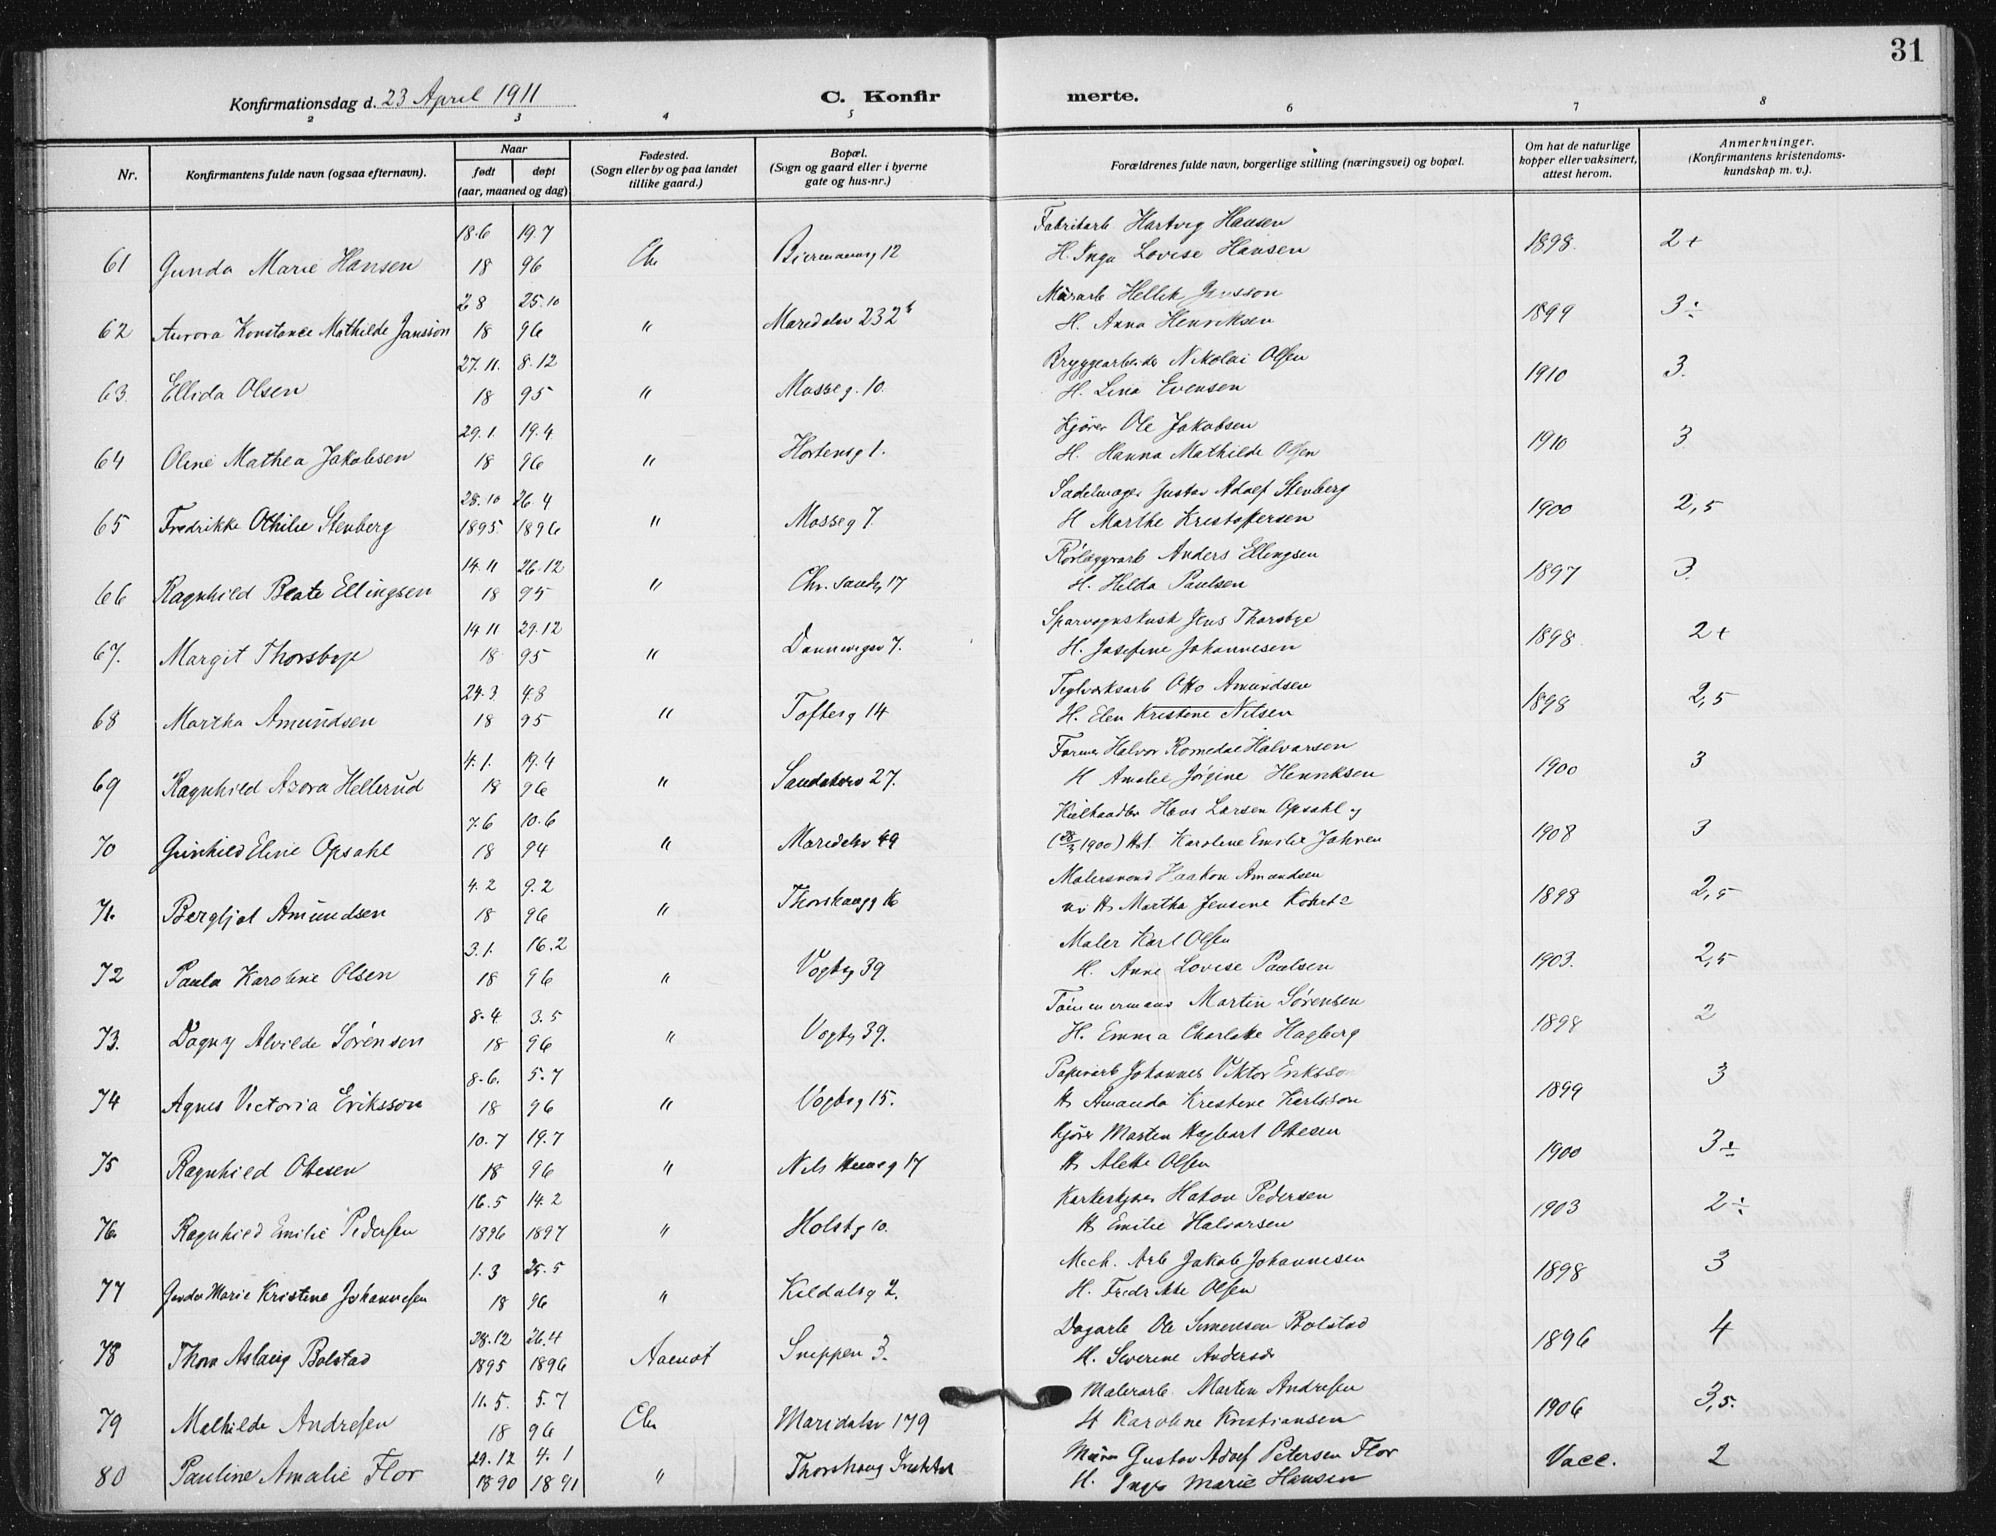 31
Konfirmationsdag d. 23 April 1911
C. Konfir merte.
2 3 4 5 6 7 8
Nr.
Konfirmantens fulde navn (ogsaa efternavn).
Naar
født døpt
(aar, maaned og dag)
Fødested.
(Sogn eller by og paa landet
tillike gaard.)
Bopæl.
(Sogn og gaard eller i byerne
gate og hus-nr.)
Forældrenes fulde navn, borgerlige stilling (næringsvei) og bopæl.
Om hat de naturlige
kopper eller vaksinert,
attest herom.
Anmerkninger.
(Konfirmantens kristendoms-
kundskap m. v.).
18.6 19.7 Fabrikarb. Hartvig Hansen
61 Gunda Marie Hansen 18 96 Chr Biermannsg 12 H. Inga Lovise Hansen 1898. 2+
28 25.10 Murarb. Hellik Jansson
62 Aurora Konstance Mathilde Jansson 18 96 " Maridalsv 232b H. Anna Henriksen 1899 3÷
27.11. 8.12 Bryggearbeider Nikolai Olsen
63. Ellida Olsen 18 95 " Mosseg. 10. H. Lina Evensen 1910 3.
29.1. 19.4. Kjører Ole Jakobsen
64 Oline Mathea Jakobsen 18 96 " Hortensg 1. H. Hanna Mathilde Olsen 1910 3
28.10 26.4 Sadelmager Gustav Adolf Stenberg
65 Fredrikke Othilie Stenberg 1895. 1896 " Mosseg 7. H Marthe Kristoffersen 1900 2,5
14.11 26.12 Rørlæggerarb Anders Ellingsen
66 Ragnhild Beate Ellingsen 18 95 " Chr. sandsg 17 H. Hilda Paulsen 1897 3.
14.11 29.12 Sporvognskusk Jens Thorsbye
67. Margit Thorsbye 18 95 " Dannevigsv 7. H. Josefine Johannesen 1898. 2+
24.3 4.8 Teglverksarb Otto Amundsen
68 Martha Amundsen 18 95 " Tofteg 14 H. Elen Kristine Nilsen 1898 2,5
4.1. 19.4 Former Halvor Romedal Halvorsen
69 Ragnhild Azora Hellerud 18 96 " Sandakerv 27. H Amalie Jørgine Henriksen 1900 3
7.6 10.6 Hans Larsen Opsahl
70 Gunhild Eline Opsahl 18 94 " Maridalsv 49 Karoline Emilie Jahren 1908 3
4.2 9.2 Malersvend Haakon Amundsen
71. Bergljot Amundsen 18 96 " Thorshaugg 16 H. Martha Jensine 1898 2,5
3.1. 16.2 Maler Karl Olsen
72 Paula Karoline Olsen 18 96 " Vogtsg 39 H. Anne Lovise Paulsen 1903. 2,5
8.4. 3.5 Tømmermand Martin Sørensen
73. Dagny Alvilde Sørensen 18 96 " Vogtsg 39. H. Emma Charlotte Hagberg 1898 2
8.6. 5.7 Papirarb Johannes Viktor Eriksson
74 Agnes Victoria Eriksson 18 96 " Vogtsg 15. H. Amanda Kristine Karlsson 1899 3
10.7 19.7 Kjører Martin Hagbart Ottesen
75 Ragnhild Ottesen 18 96 " Nils Huusg 17 H. Alette Olsen 1900 3÷
16.5 14.2 Hakon Pedersen
76. Ragnhild Emilie Pedersen 1896 1897 " Holstsg 10. H. Emilie Halvorsen 1903 2÷
1.3 25.5 Mech. Arb Jakob Johannesen
77 Marie Kristine Johannesen 18 96 " Kildalsg 2. H. Fredrikke Olsen 1898 3
28.12 26.4 Dagarb Ole Simensen Bolstad
78 Thora Aslaug Bolstad 1895 1896 Aamot Snippen 3. H. Severine Andersdr 1896 4
11.5. 5.7 Malerarb. Martin Andresen
79 Mathilde Andresen 18 96 Chr Maridalsv 179 H Karoline Kristiansen 1906 3,5.
29.12 4.1 Murer Gustav Adolf Petersen Flor
80 Pauline Amalie Flor 1890 1891 " Thorshaug Institut H. Inga Marie Hansen Vacc. 2